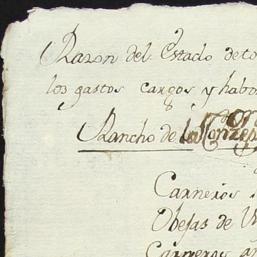 Razon del Estado de to
los gastos cargos y habo
Rancho de la Conzep
Carneros
Obejas de V
Carneros añ